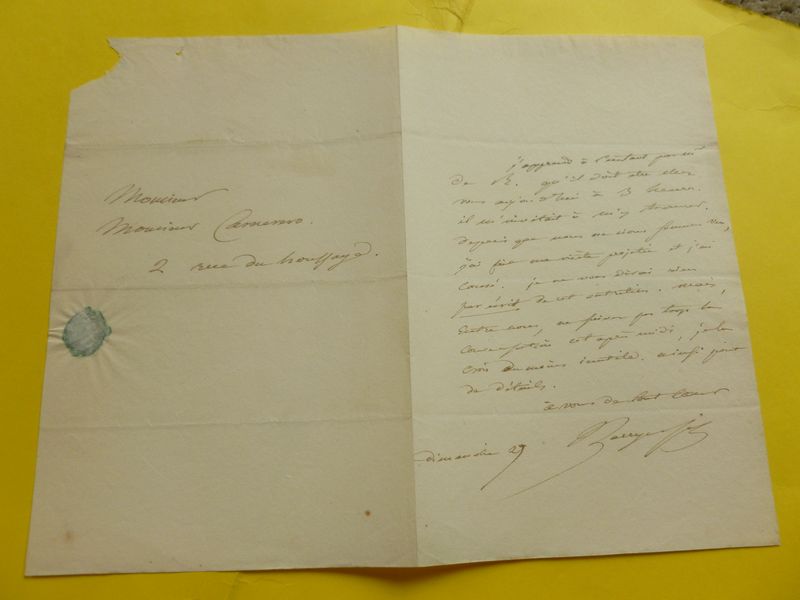 Monsieur
Monsieur Camerino.
2 rue du houssaye.
j'apprends à l'instant par Mr
de R. qu'il doit être chez
vous aujourd'hui à 3 heures.
il m'invitait à m'y trouver.
depuis que nous ne nous sommes vu,
j'ai fait ma visite projetée et j'ai
causé. je ne vous dirai rien
par écrit de cet entretien. mais,
entre nous, ne pas la
conversation cet après midi, je la
crois du moins inutile. ainsi point
de détails.
à vous de tout coeur
Berryer fils
dimanche 29